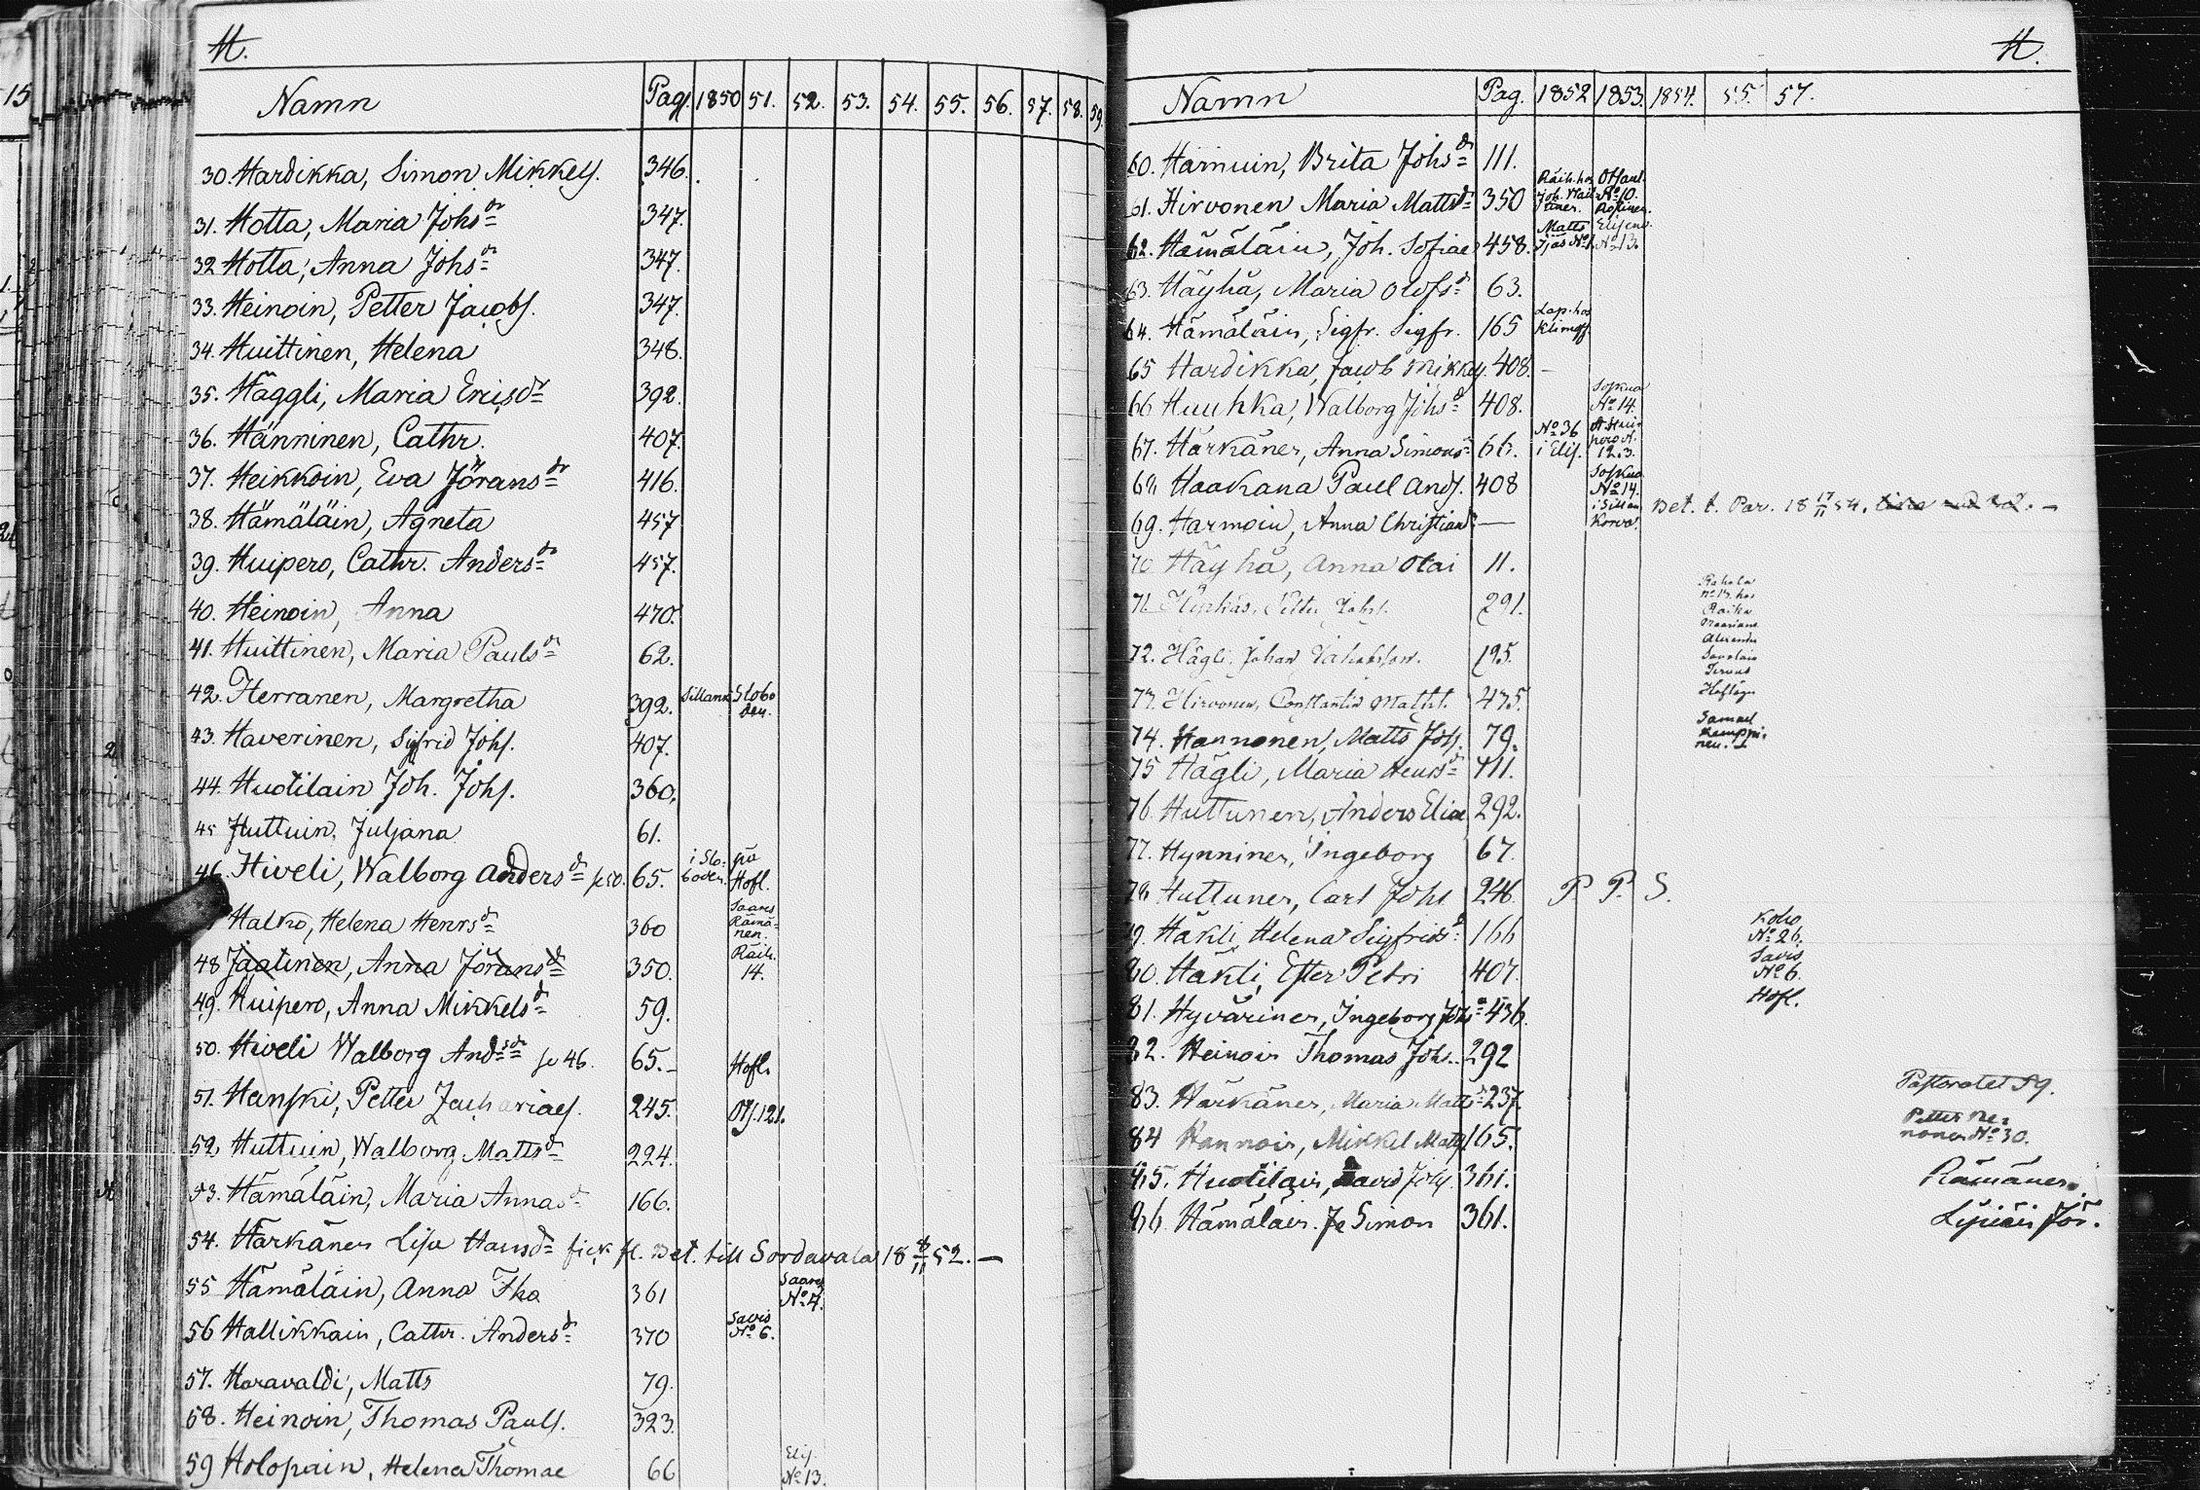 H.
Namn Pag. 1850 51. 52. 53. 54. 55. 56. 57. 58. 59.
30. Hardikka, Simon Mikkels. 346.
31. Hotta, Maria Johsdr 347.
32 Hotta, Anna Johsdr 347.
33. Heinoin, Petter Jacobs. 347.
34. Huittinen, Helena 348.
35. Häggli, Maria Ericsdr 392.
36. Hänninen, Cathr. 407.
37. Heikkoin, Eva Jöransdr 416.
38. Hämäläin, Agneta 457
39. Huipero, Cathr. Andersdr 457.
40. Heinoin, Anna 470.
41. Huittinen, Maria Paulsdr 62.
42. Herranen, Margretha 392. Sillank Slobo den.
43. Haverinen, Sigfrid Johs. 407.
44. Huotilain Joh. Johs. 360.
45 Huttuin, Juljana 61.
46. Hiveli, Walborg Andersdr se 50. 65. i Slo- boden. på Hofl.
Halko, Helena Henrsdr 360 Saares Rämä- nen.
48 Jäätinen, Anna Jöransdr 350. Räih. 14.
49. Huipero, Anna Mikkelsdr 59.
50. Hiveli Walborg Andsdr se 46. 65.- Hofl.
51. Hanski, Petter Zachariaes. 245. Ojs. 121.
52. Huttuin, Walborg Mattsdr 224.
53. Hämäläin, Maria Annasdr 166.
54. Härkänen Lisa Hansdr fick fl. Bet. till Sordavala 18 8/11 52. —
55 Hämäläin, Anna Tho 361 Saares No 4.
56 Hallikkain, Cathr. Andersdr 370 Savis No 6.
57. Haravaldi, Matts 79.
58. Heinoin, Thomas Pauls. 323.
59 Holopain, Helena Thomae 66 Elis. No 13.
H.
Namn Pag. 1852 1853. 1854. 55. 57.
60. Harnuin, Brita Johsdr 111.
61. Hirvonen Maria Mattsdr 350 Räih. hos No 10.
62. Hämäläin, Joh. Sofiae 458. Matts No 13.
63. Häyhä, Maria Olofsdr 63.
64. Hämäläin, Sigfr. Sigfr. 165 Lap. hos Klimoff
65 Hardikka, Jacob Mikkels. 408. -
66 Huuhka, Walborg Johsdr 408. Sopkua No 14.
67. Härkänen, Anna Simonsdr 66. No 36 i Elis. 123.
68 Haakana Paul Ands. 408 Sopkua No 14.
69. Harmoin, Anna Christiansdr — Bet. t. Par. 18 17/11 54. —
70 Häyhä, Anna Olai 11.
71 Petter Johs. 291.
72. Hägli, Johan 195.
73. Hirvonen, Constantin Matht. 435.
74. Hannonen, Matts Johs. 79. Samuel Kemppi- nen.
75 Hägli, Maria Henrsdr 411.
76. Huttunen, Anders Eliae 292.
77. Hynninen, Ingeborg 67.
78 Huttunen, Carl Johs 246. P. P. S.
79. Häkli, Helena Sigfridsdr 166 Koho No 26.
80. Häkli, Ester Petri 407. Savis No 6.
81. Hyvärinen, Ingeborg Johsdr 436. Hofl.
82. Heinoin Thomas Johs. 292
83. Härkänen, Maria Mattsdr 237. Pastoratet 59.
84 Hannoin, Mikkel Matts 165. Petter Ne- nonen No 30.
85. Huotilain, David Johs. 361. Rämänen.
86. Hämäläin. Simon 361.